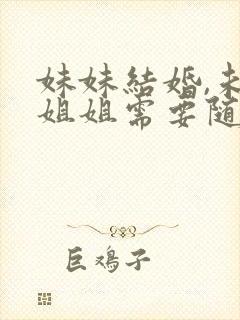 妹妹結婚,未
姐姐需要随
巨鸡子